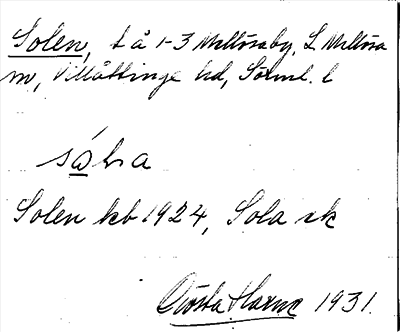 Solen, t å 1-3 Mellösaby, L Mellösa
sn, Villåttinge hd, Sörml. l
sá̱la
Solen kb 1924, Sola sk
Gösta Hazme 1931.